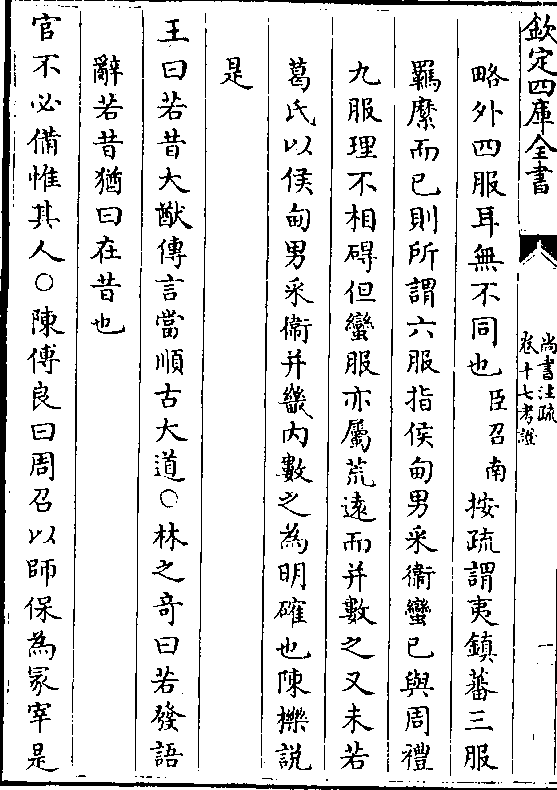 欽定四庫全書
尚書注疏
卷十七考證
一
略外四服耳無不同也臣召南按疏謂夷鎮蕃三服
羈縻而已則所謂六服指侯甸男采衛蠻已與周禮
九服理不相碍但蠻服亦屬荒遠而并數之又未若
葛氏以侯甸男采衛并畿内數之為明確也陳櫟説
是
王曰若昔大猷傳言當順古大道○林之奇曰若發語
辭若昔猶曰在昔也
官不必備惟其人○陳傅良曰周召以師保為冢宰是